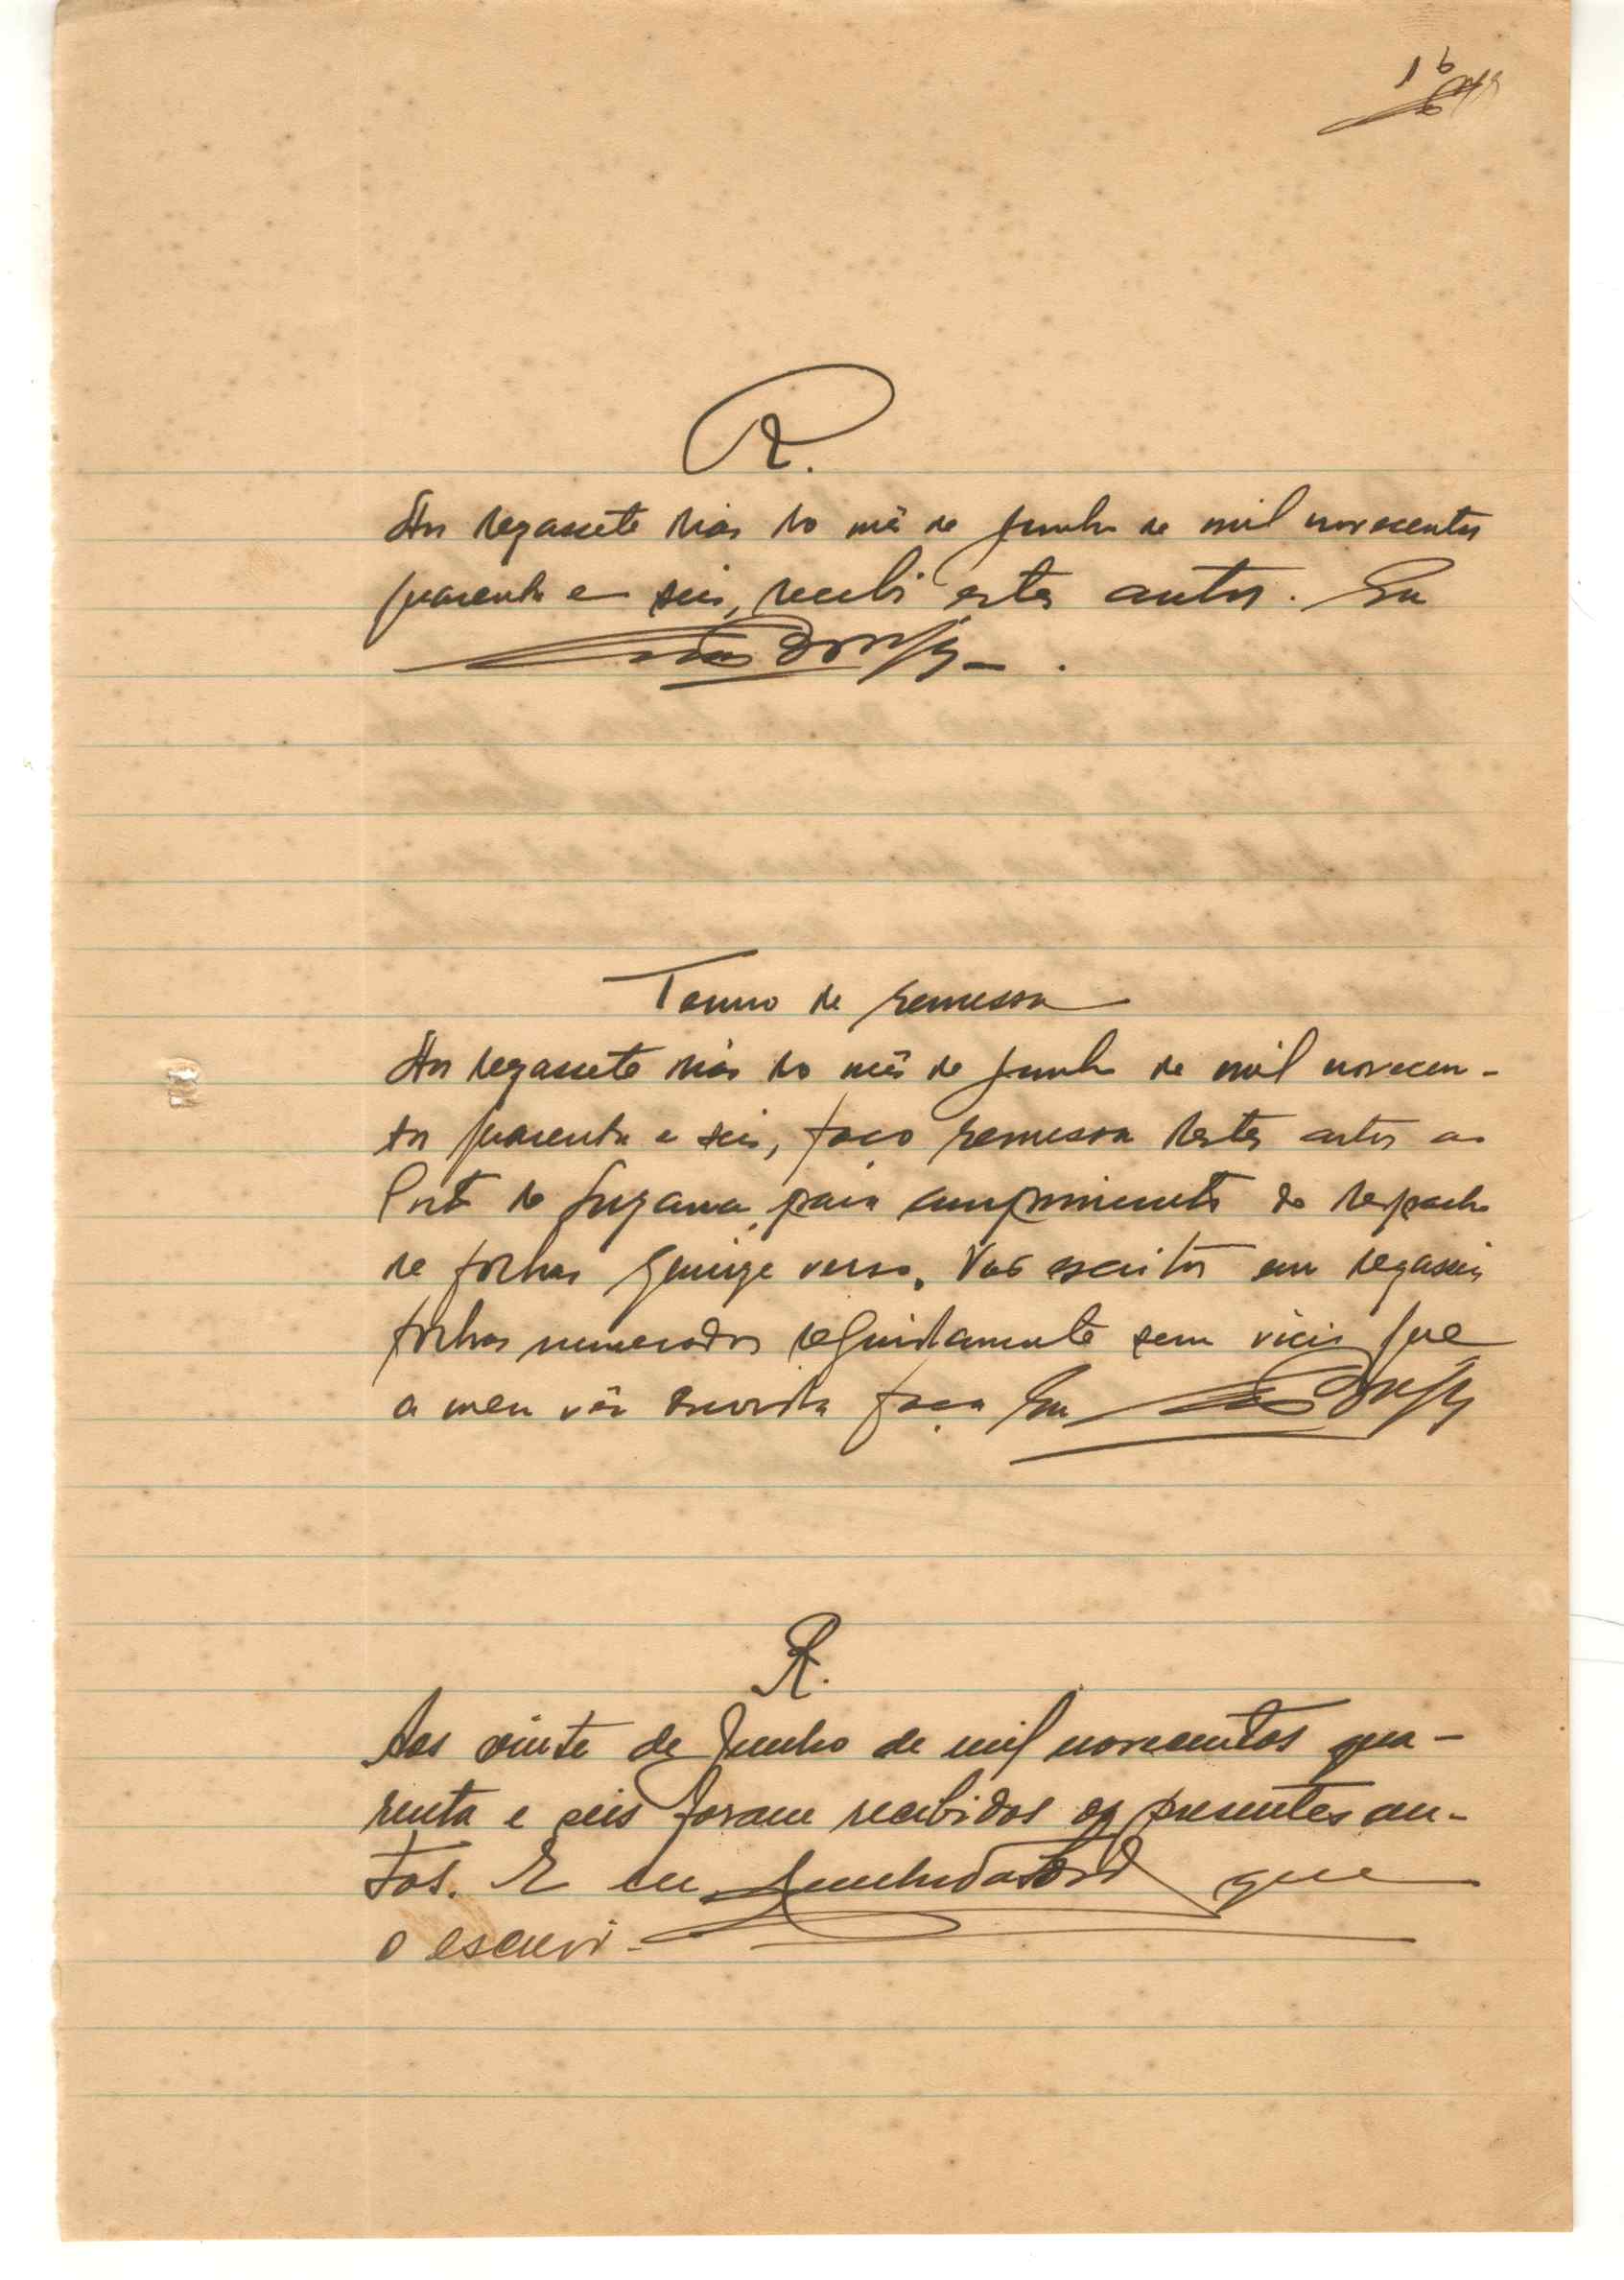 16
R.
Aos dezassete dias do mês de Junho de mil novecentos
quarenta e seis, recebi estes autos. Eu
Termo de remessa
Aos dezassete dias do mês de Junho de mil novecen-
tos quarenta e seis, faço remessa destes autos ao
Posto de para cumprimento do despacho
de folhas quinze verso. Vão escritos em dezasseis
folhas numeradas seguidamente sem vício que
a meu vêr duvida faça Eu
R.
Aos vinte de Junho de mil novecentos qua-
renta e seis foram recebidos os presentes au-
tos. E eu que
o escrevi.